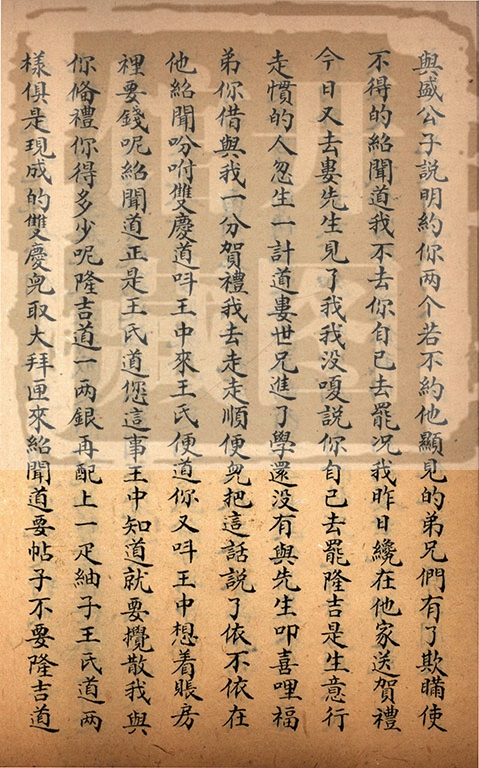 與盛公子説明約你两个若不約他顯見的弟兄們有了欺瞞使
不得的紹聞道我不去你自己去罷况我昨日纔在他家送賀禮
今日又去婁先生見了我我没嗄説你自己去罷隆吉是生意行
走慣的人忽生一計道婁世兄進了學還没有與先生叩喜哩福
弟你借與我一分賀禮我去走走順便兠把這話説了依不依在
他紹聞吩咐雙慶道呌王中來王氏便道你又呌王中想着賬房
裡要錢呢紹聞道正是王氏道您這事王中知道就要攪散我與
你偹禮你得多少呢隆吉道一两銀再配上一疋紬子王氏道两
樣俱是現成的雙慶兠取大拜匣來紹聞道要帖子不要隆吉道